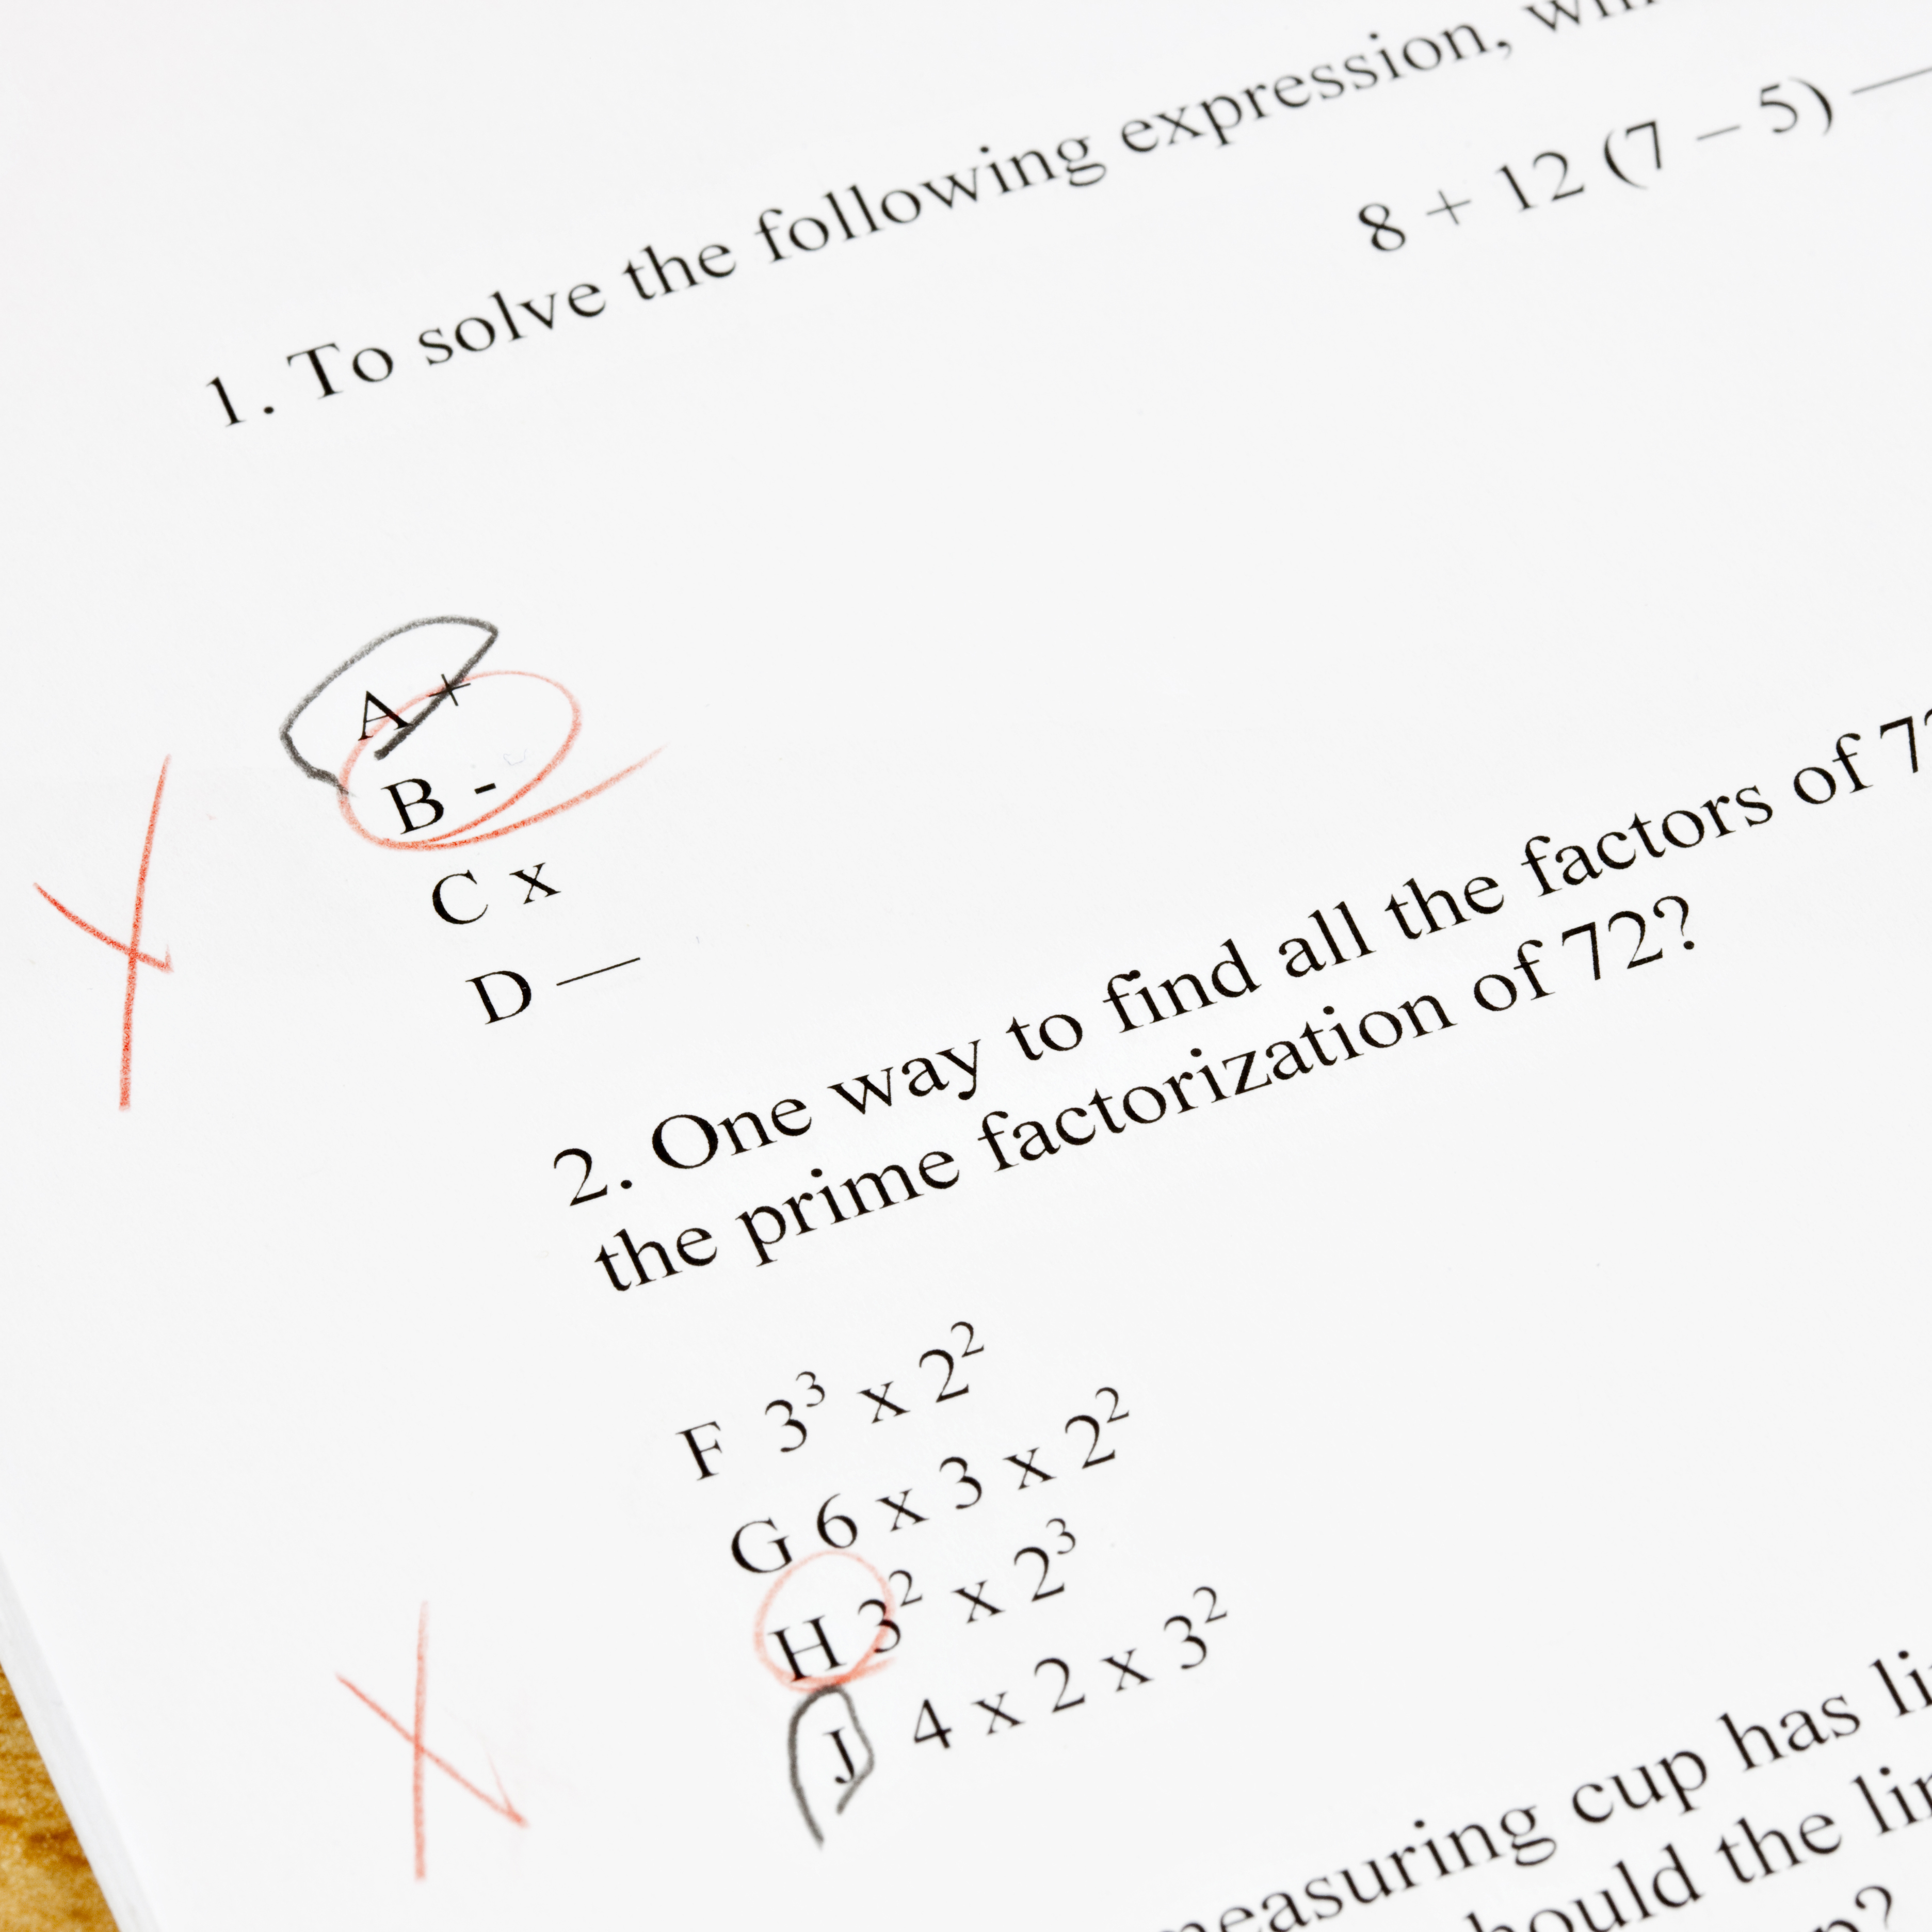 1. To solve the following expression,
8 + 12 (7 – 5) —
A +
B -
C x
D —
2. One way to find all the factors of
the prime factorization of 72?
F 3³ x 2²
G 6 x 3 x 2²
H 3² x 2³
J 4 x 2 x 3²
measuring cup has
the